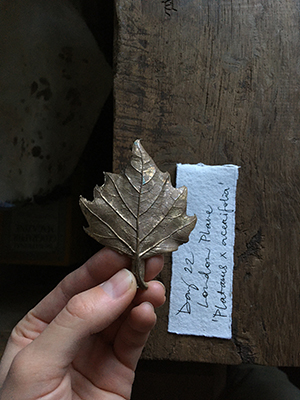 Day 22
London Plane
'Platanus x acerifolia'